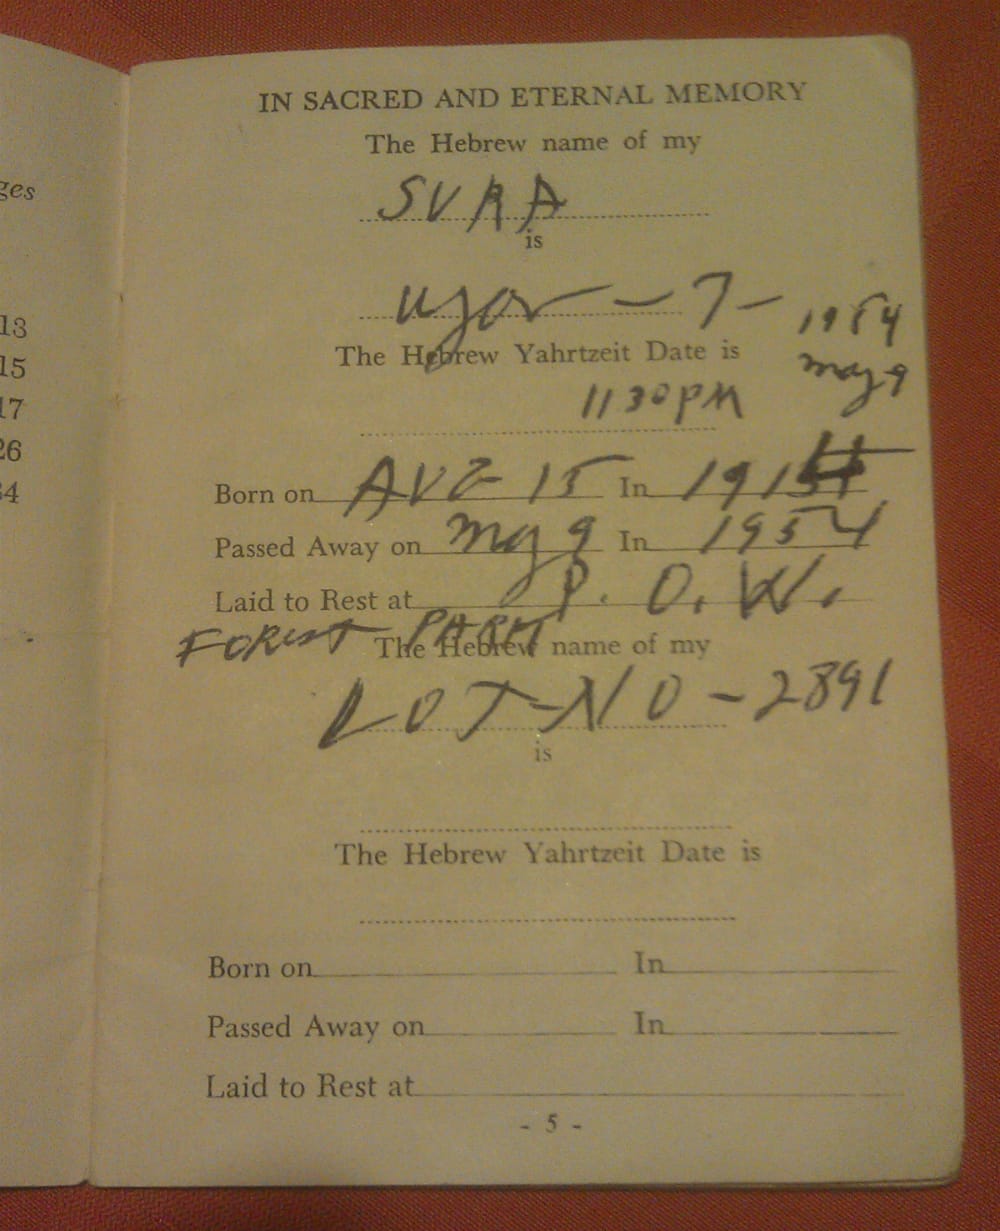 ges
13
15
17
26
34
IN SACRED AND ETERNAL MEMORY
The Hebrew name of my
SURA
is
- 7 - 1954
The Hebrew Yahrtzeit Date is
May 9
11 30 PM
Born on AUG 15 In 191
Passed Away on May 9 In 1954
Laid to Rest at P. O. W.
FOREST PARK
The Hebrew name of my
LOT-NO-2891
is
The Hebrew Yahrtzeit Date is
Born on In
Passed Away on In
Laid to Rest at
- 5 -